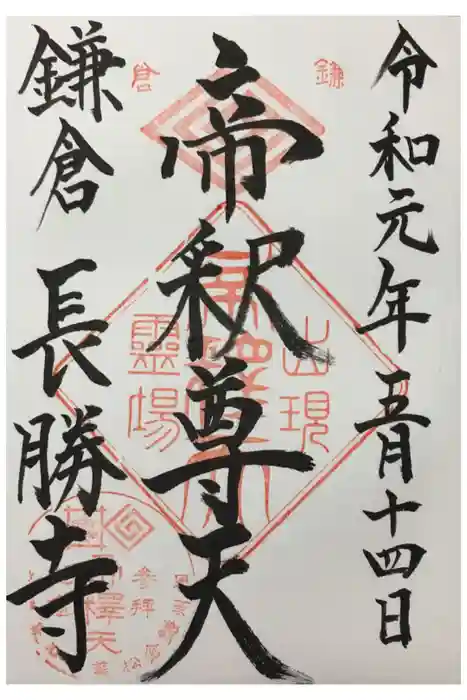 令和元年五月十四日
帝釈尊天
鎌倉 長勝寺
鎌
倉
出現
霊場
参拝